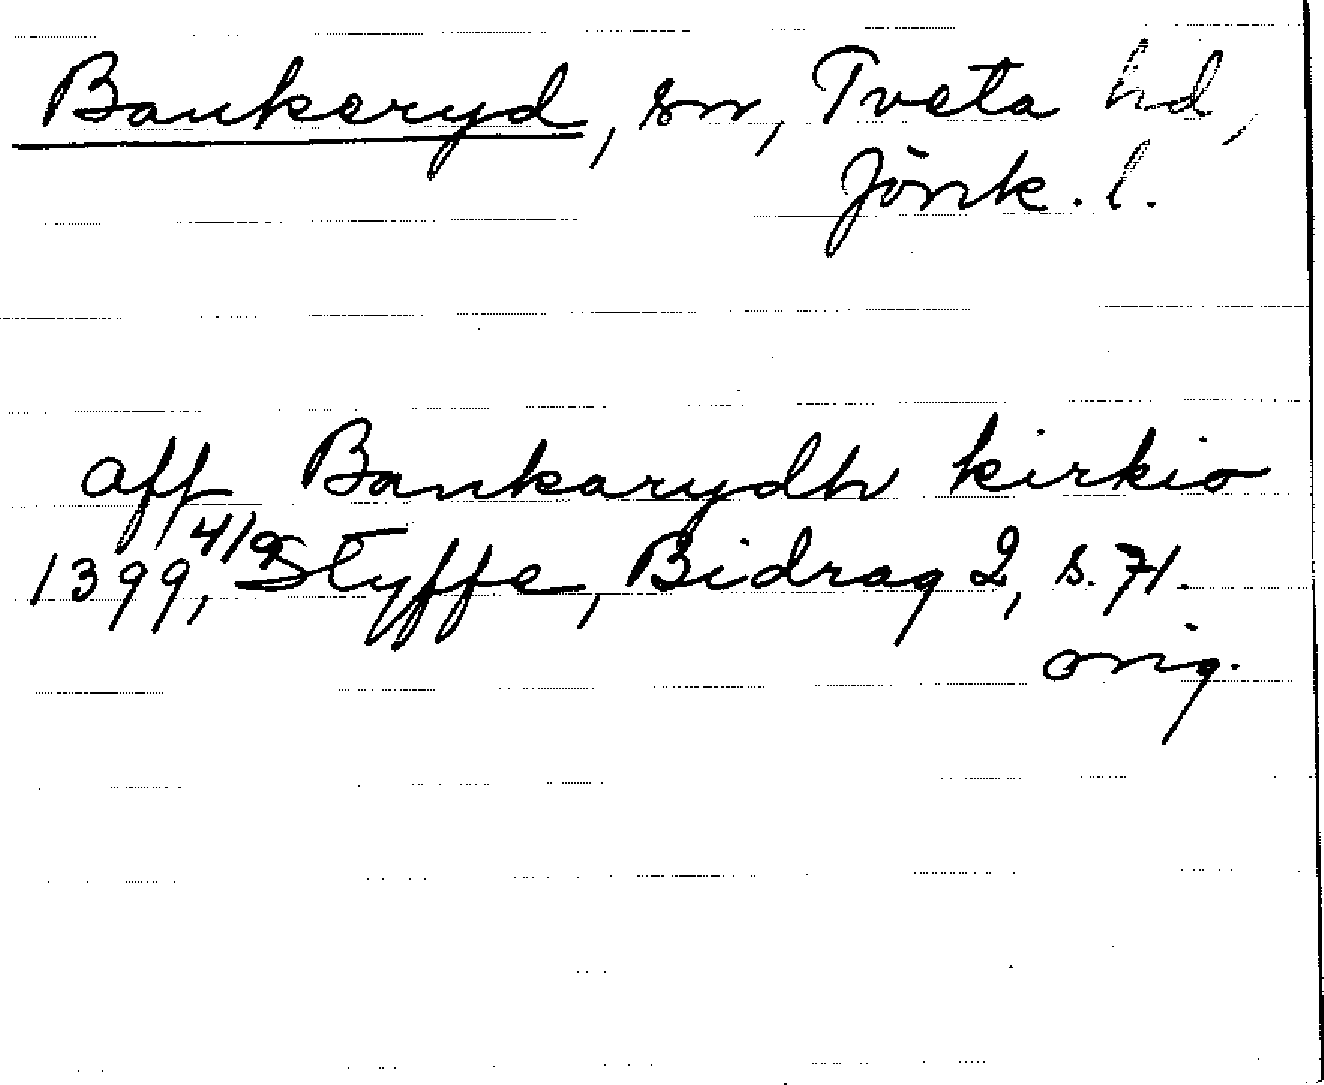 Bankeryd, sn, Tveta hd,
Jönk. l.
aff Bankarydh kirkio
1399 4/9, Styffe, Bidrag 2, s. 71.
orig.